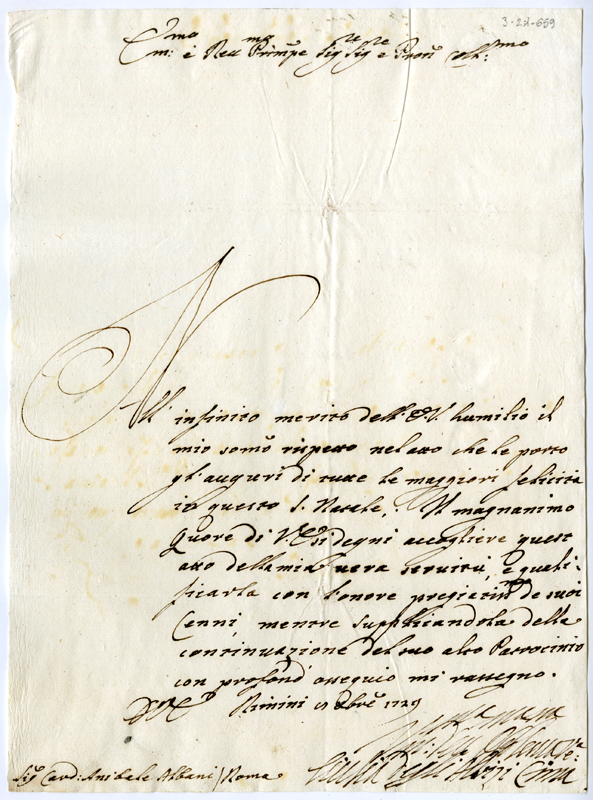 3-21-659
Em:mo e Reu:mo Prinipe Sig:re Sig:re e Pron Coll:mo
All' infinito merito dell' E.V. humilio il
mio somo rispetto nel atto che le porto
gl'auguri di tutte le maggiori felicità
in questo S. Natale, Il magnanimo
Quore di V. E. si degni accogliere quest
atto della mia vera servitù, e quali-
ficarla con l'onore pregiatmo de suoi
Cenni, mentre supplicandola della
continuazione del suo alto Patrocinio
con profond' ossequio mi rassegno.
D V E Rimini 17 Xbre 1729
Sig Card: Anibale Albani / Roma